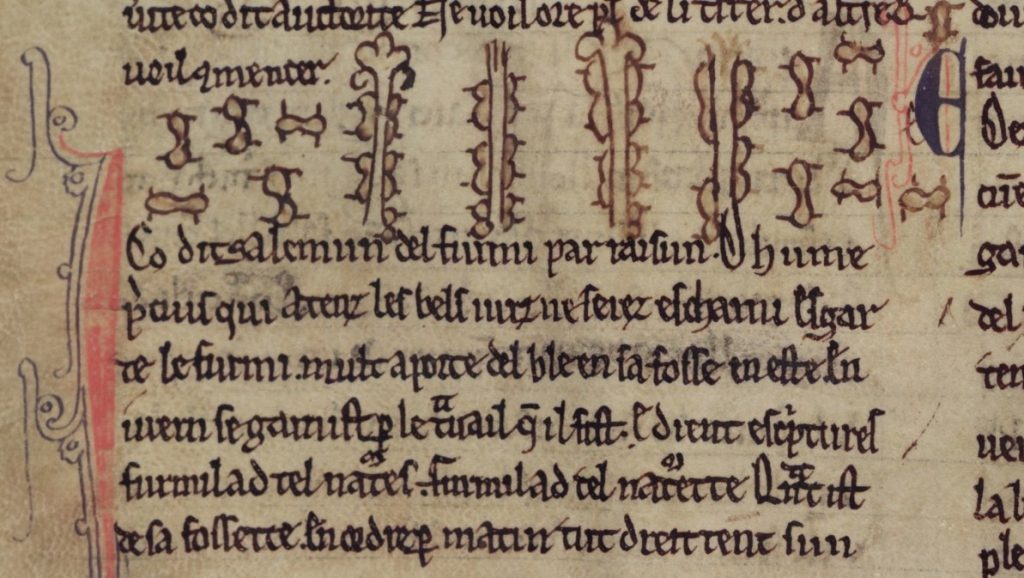 uite co dit auctorite Ge uoil ore pl' de li t'iter. d altre
uoil 9mencer.
Co dit salemun del furmi par raisun. O hume
p'cius qui atenz les bels iurz ne serez eschani Esgar
te le furmi. mult aporte del ble en sa fosse en este En
iuern se garnist ꝑ le t^auail q̄ il fist. E dient esc'ptures
furmi lad tel nat^es. furmi lad tel nat^ette Q^ant ist
de sa fossette. En ordre ꝑ matin tut dreit tent sun
De
gar
del
ten
uer
la l
ple